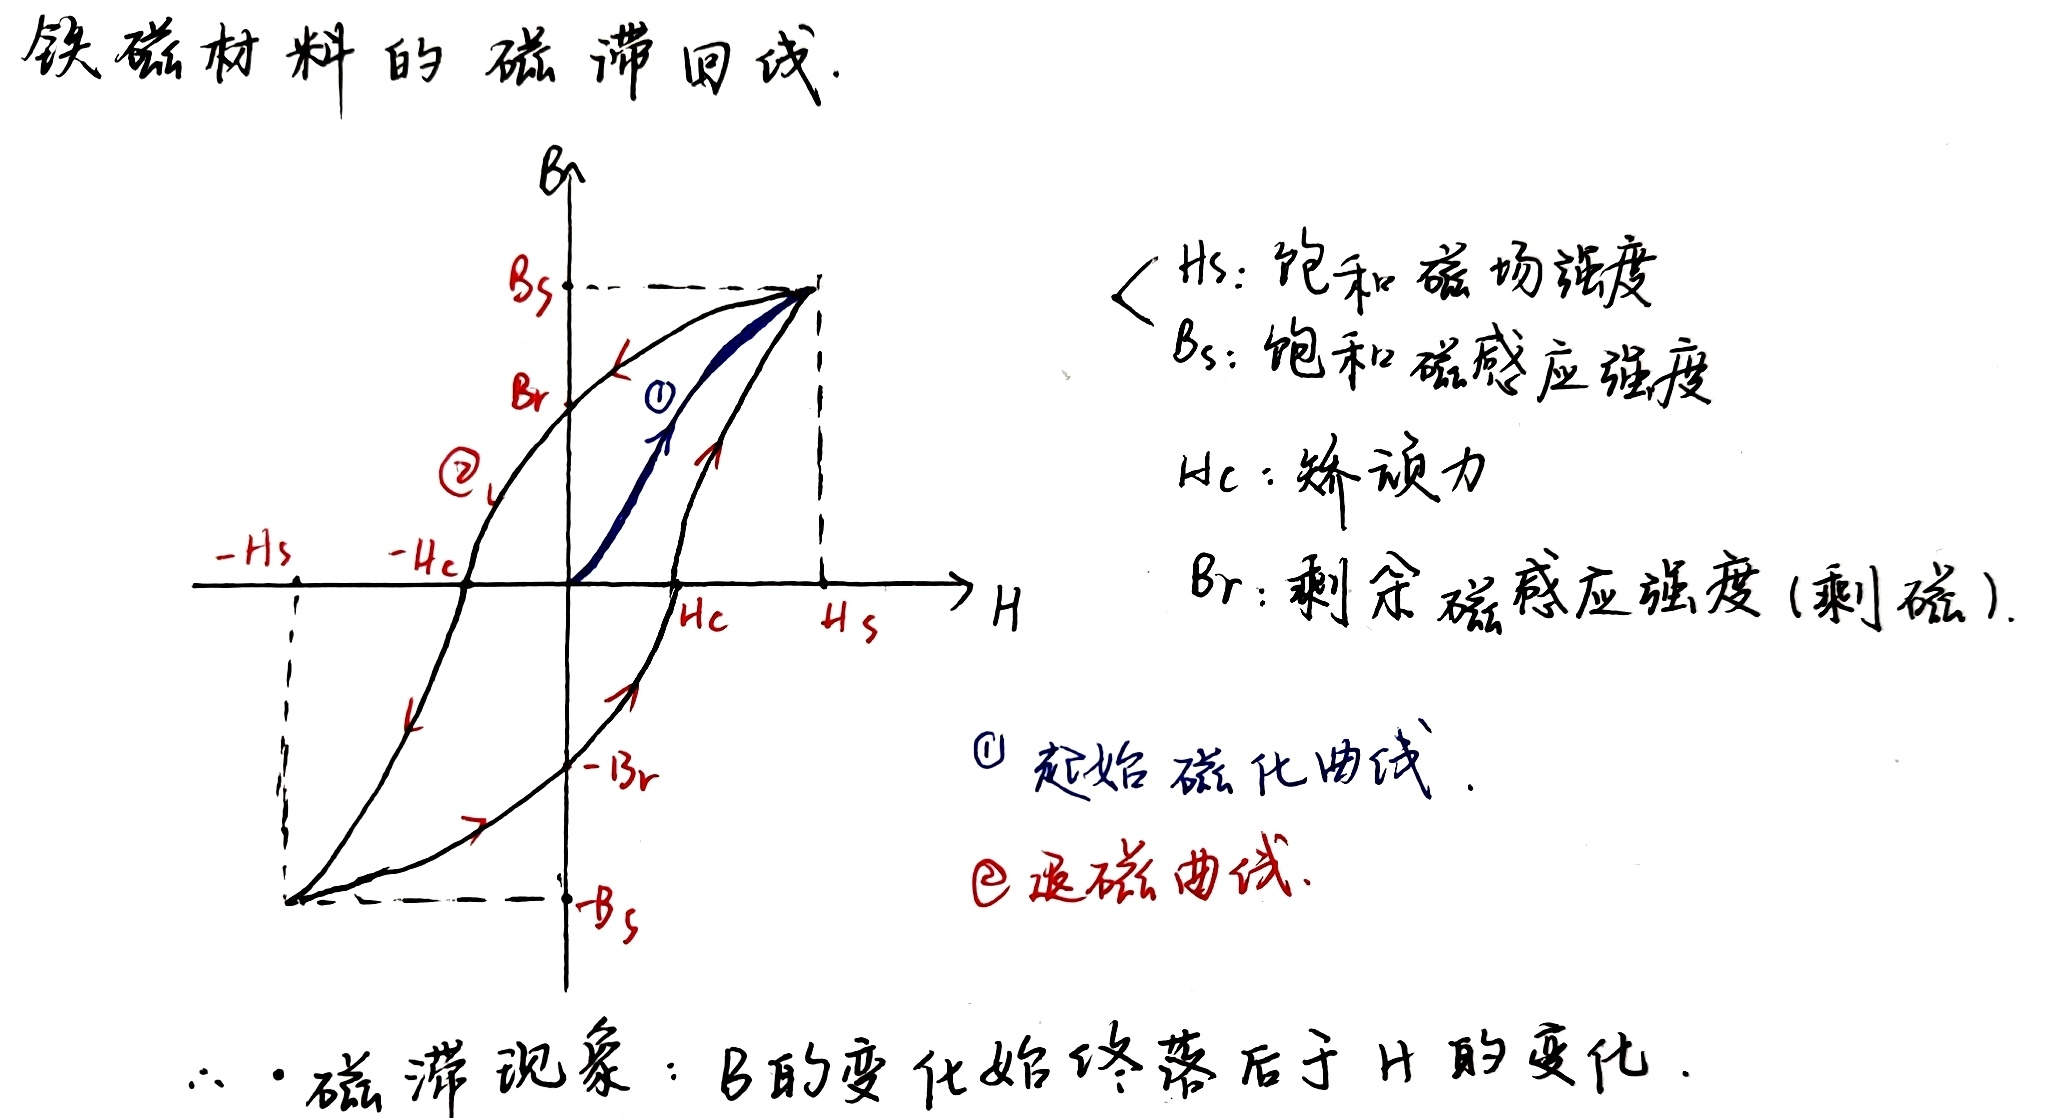 铁磁材料的磁滞回线.
B
Bs
Br
①
②
-Hs
-Hc
Hc
Hs
H
-Br
-Bs
Hs: 饱和磁场强度
Bs: 饱和磁感应强度
Hc: 矫顽力
Br: 剩余磁感应强度(剩磁).
① 起始磁化曲线.
② 退磁曲线.
∴ · 磁滞现象: B的变化始终落后于H的变化.